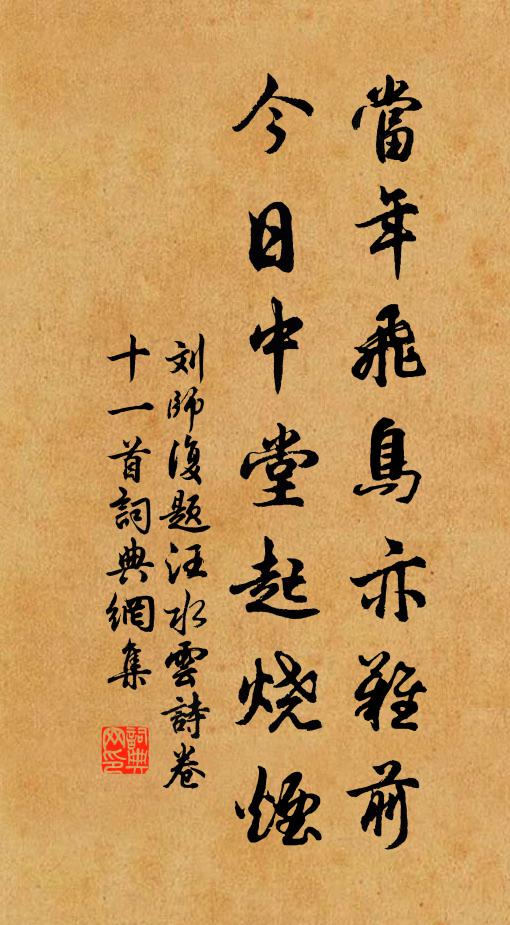 當年飛鳥亦難前
今日中堂起烧煙
刘師復題汪水雲詩卷
十一首詞典網集
詞典網印